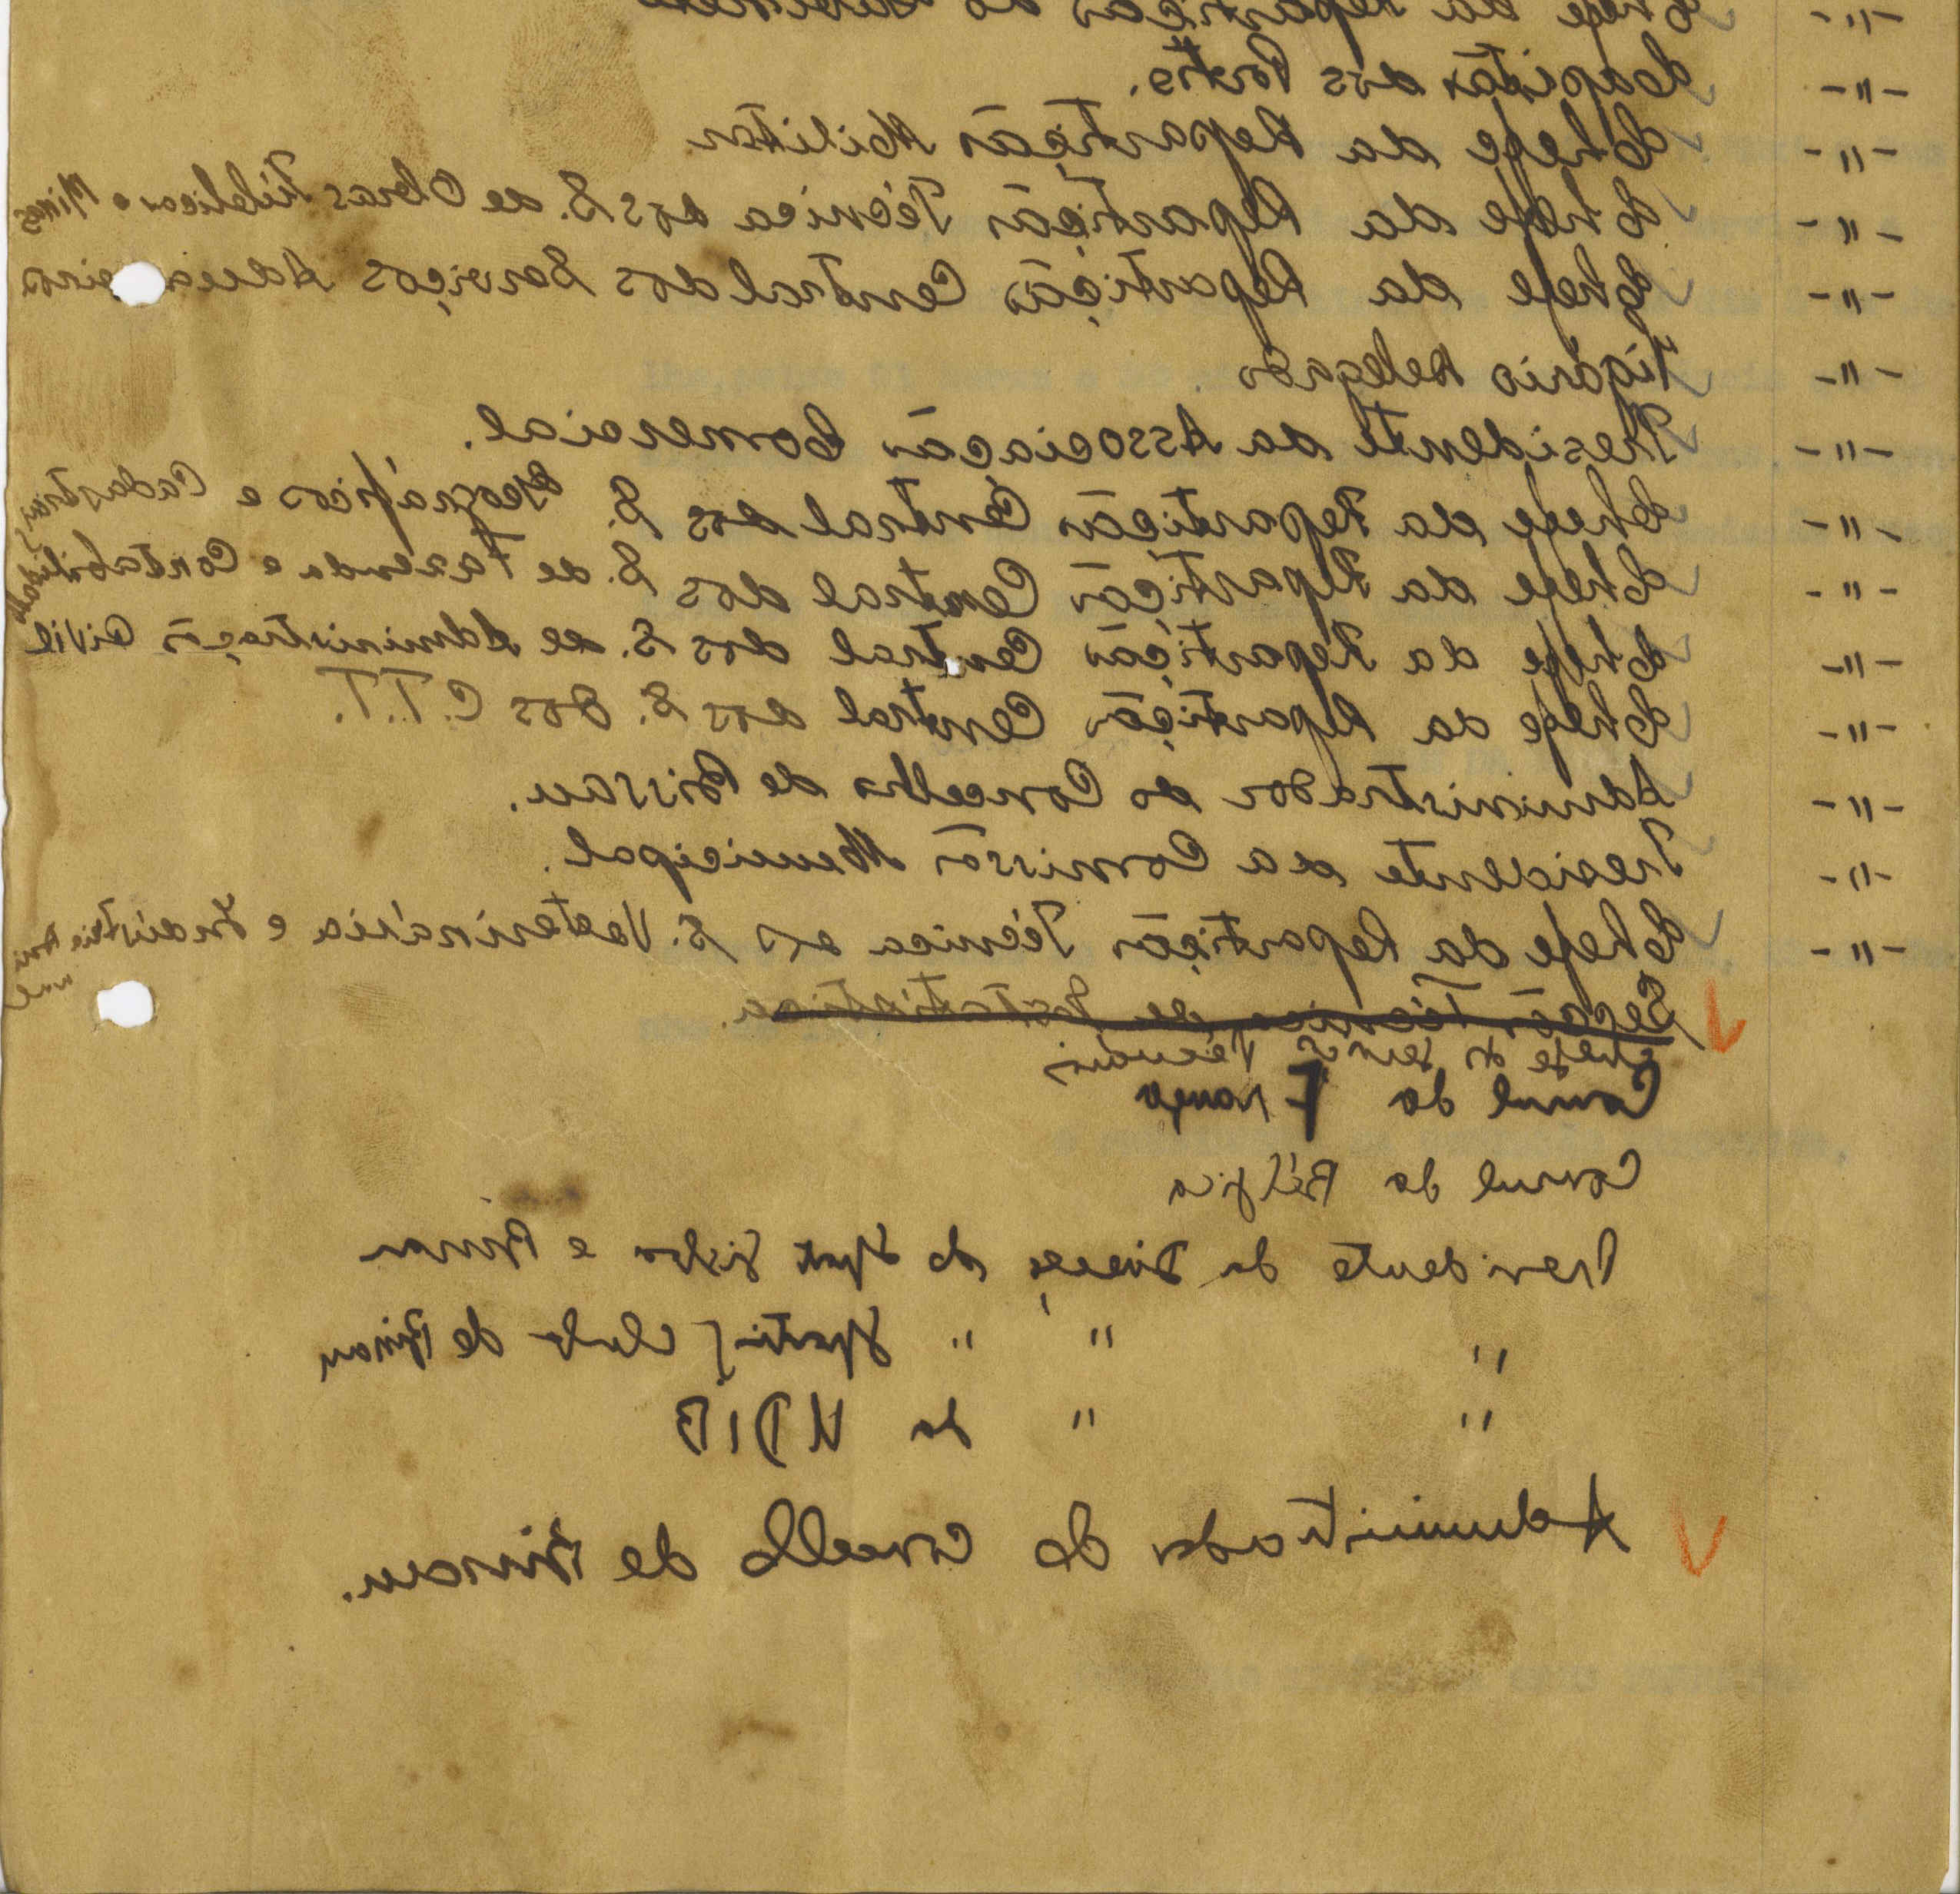 -"- Chefe da Repartição do Gabinete
-"- Capitão dos Portos.
-"- Chefe da Repartição Militar
-"- Chefe da Repartição Técnica dos S. de Obras Públicas e Minas
-"- Chefe da Repartição Central dos Serviços Aduaneiros
-"- Vigário Delegado
-"- Presidente da Associação Comercial.
-"- Chefe da Repartição Central dos S. Geográficos e Cadastrais
-"- Chefe da Repartição Central dos S. de Fazenda e Contabilidade
-"- Chefe da Repartição Central dos S. de Administração Civil
-"- Chefe da Repartição Central dos S. dos C.T.T.
-"- Administrador do Concelho de Bissau.
-"- Presidente da Comissão Municipal.
-"- Chefe da Repartição Técnica dos S. Veterinária e Indústria
Secção Técnica de Estatística.
Chefe do
Consul da França
Consul da Bélgica
Presidente da Direcção do Sport Lisboa e Bissau
" " " Sporting Club de Bissau
" " da UDIB
Administrador do Concelho de Bissau.